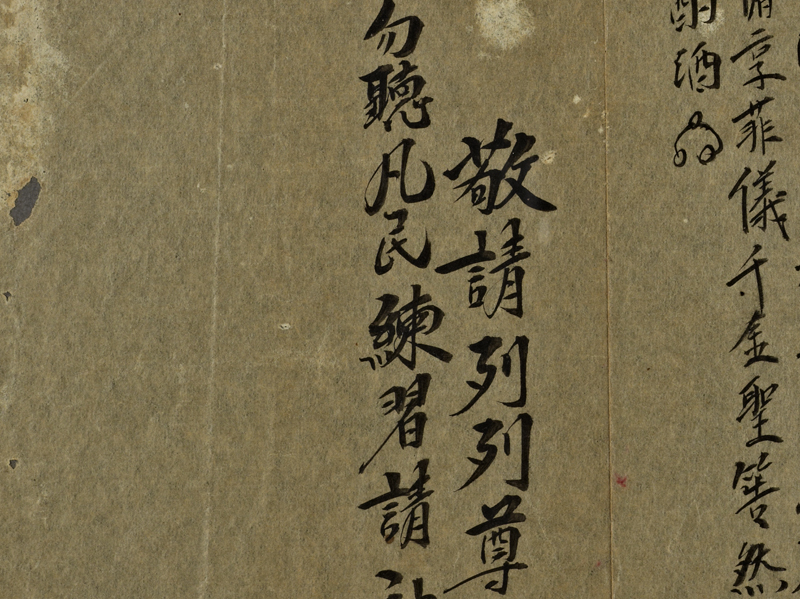 享菲儀千金聖筶然
酒
敬請列列尊
勿聽凡民練習請